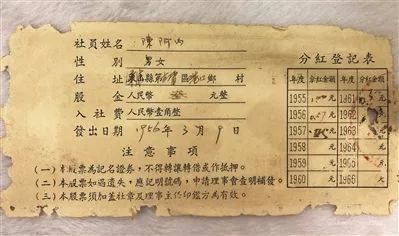 社員姓名 陳阿
性　別 男女
住　址 縣第 區 鄉 村
股　金 人民幣 元整
入社費 人民幣壹角整
發出日期 1956年3月9日
注意事項
(一)本股票為記名證券，不得轉讓轉借或作抵押。
(二)本股票如因遺失，應記明號碼，申請理事會查明補發。
(三)本股票須加蓋社章及理事主任印鑑方為有效。
分紅登記表
年度 分紅金額 年度 分紅金額
1955 元 1961 元
1956 元 1962 元
1957 元 1963 元
1958 元 1964 元
1959 元 1965 元
1960 元 1966 元